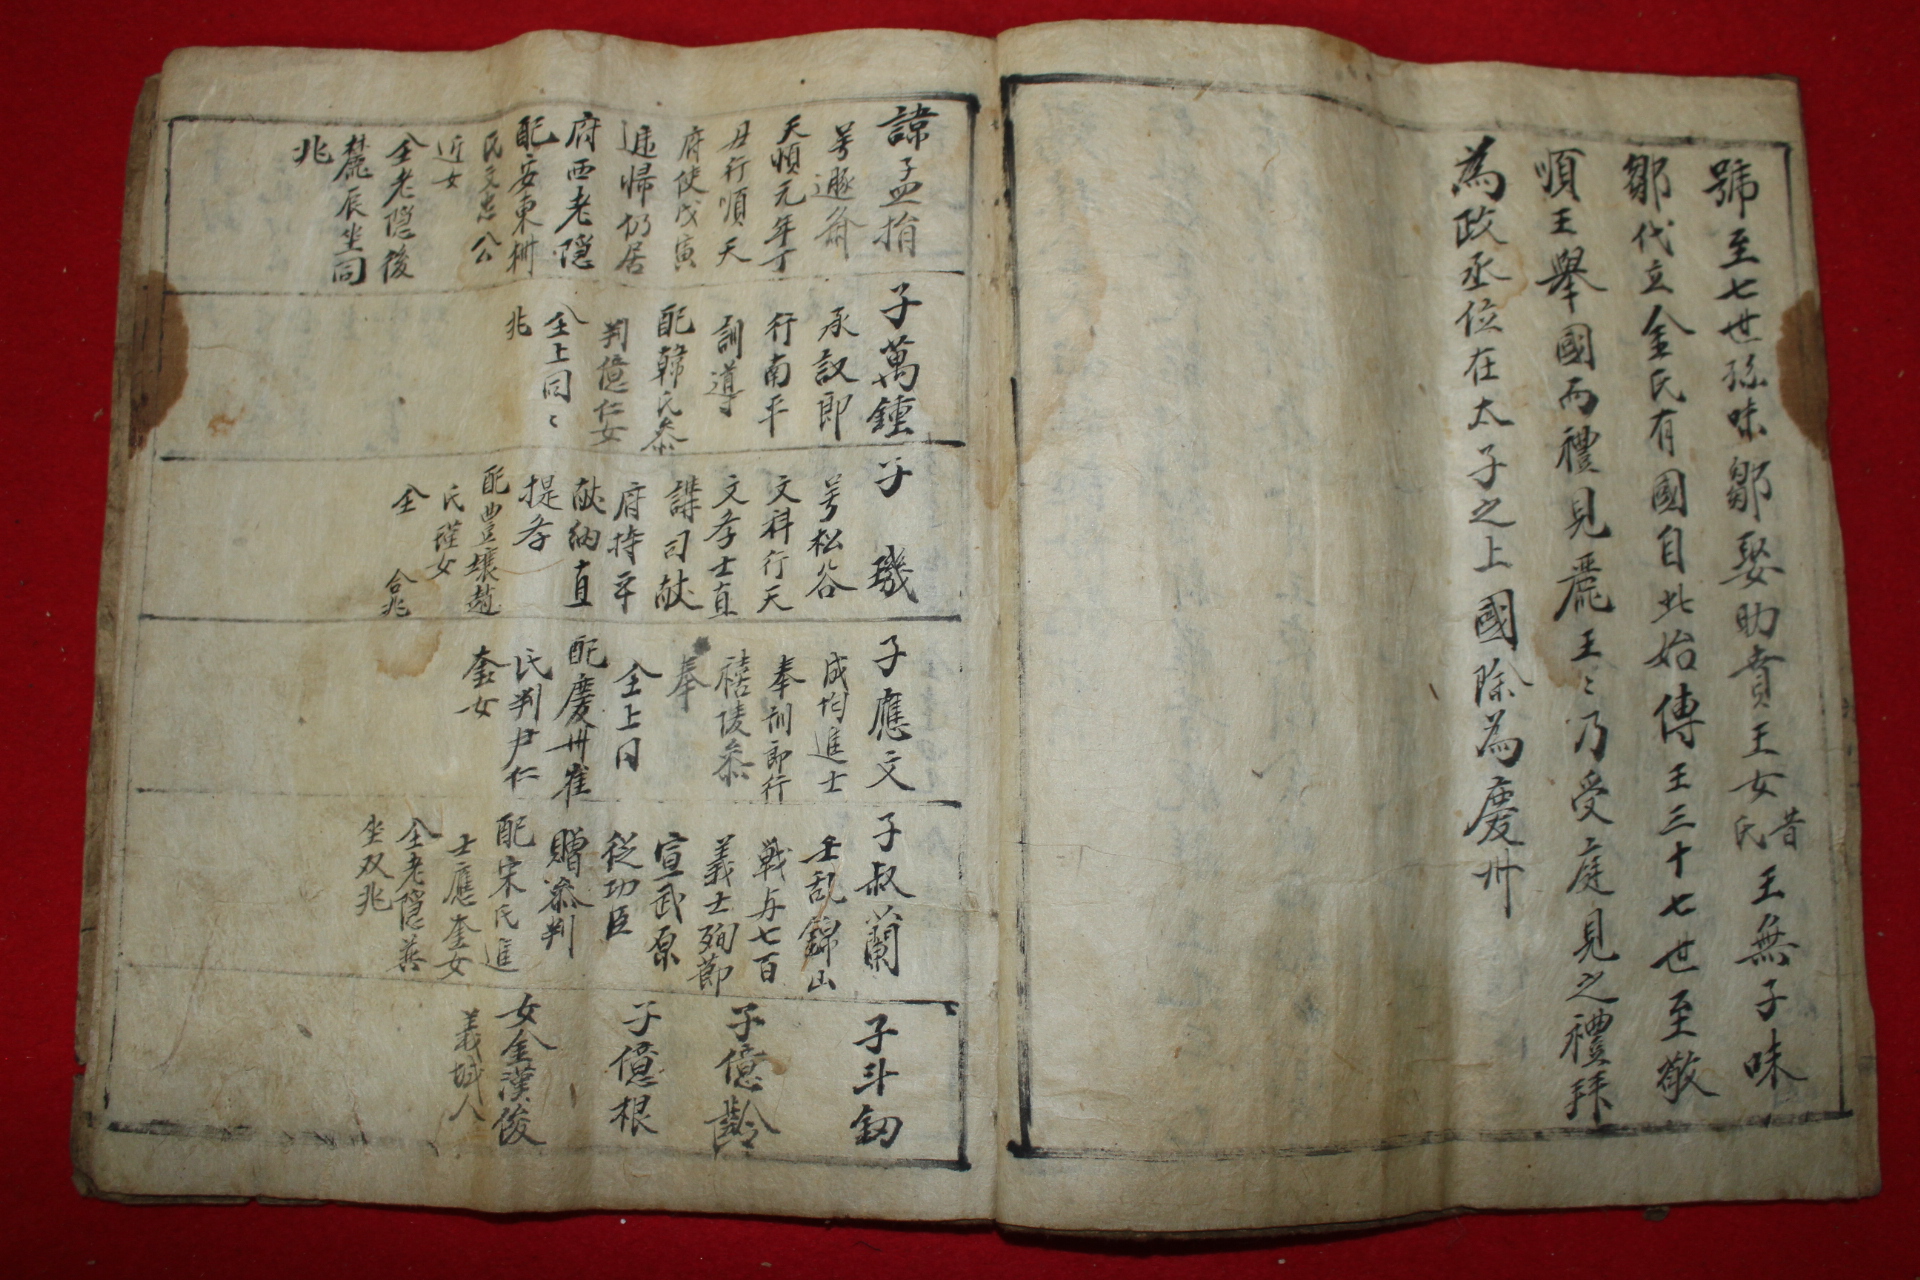 號至七世孫味鄒娶助賁王女昔氏王無子味
鄒代立金氏有國自此始傳王三十七世至敬
順王舉國而禮見麗王〻乃受庭見之禮拜
為政丞位在太子之上國除為慶州
諱孟㨒
号遯齋
天順元年丁
丑行順天
府使戊寅
遞歸仍居
府西老隠
配安東權
氏文忠公
近女
仝老隠後
麓辰坐同
兆
子萬鍾
承訓郎
行南平
訓導
配韓氏叅
判億仁女
仝上同〻
兆
子 璣
号松谷
文科行天
文孝士直
講司献
府持平
献納直
提孝
配豊壤趙
氏瑾女
仝 合兆
子應文
成均進士
奉訓郎行
禧陵叅
奉
仝上同
配慶州崔
氏判尹仁
奎女
子叔蘭
壬乱錦山
戦与七百
義士殉節
宣武原
從功臣
贈叅判
配宋氏進
士應奎女
仝老隠善
坐双兆
子斗釰
子億齡
子億根
女金漢俊
義城人